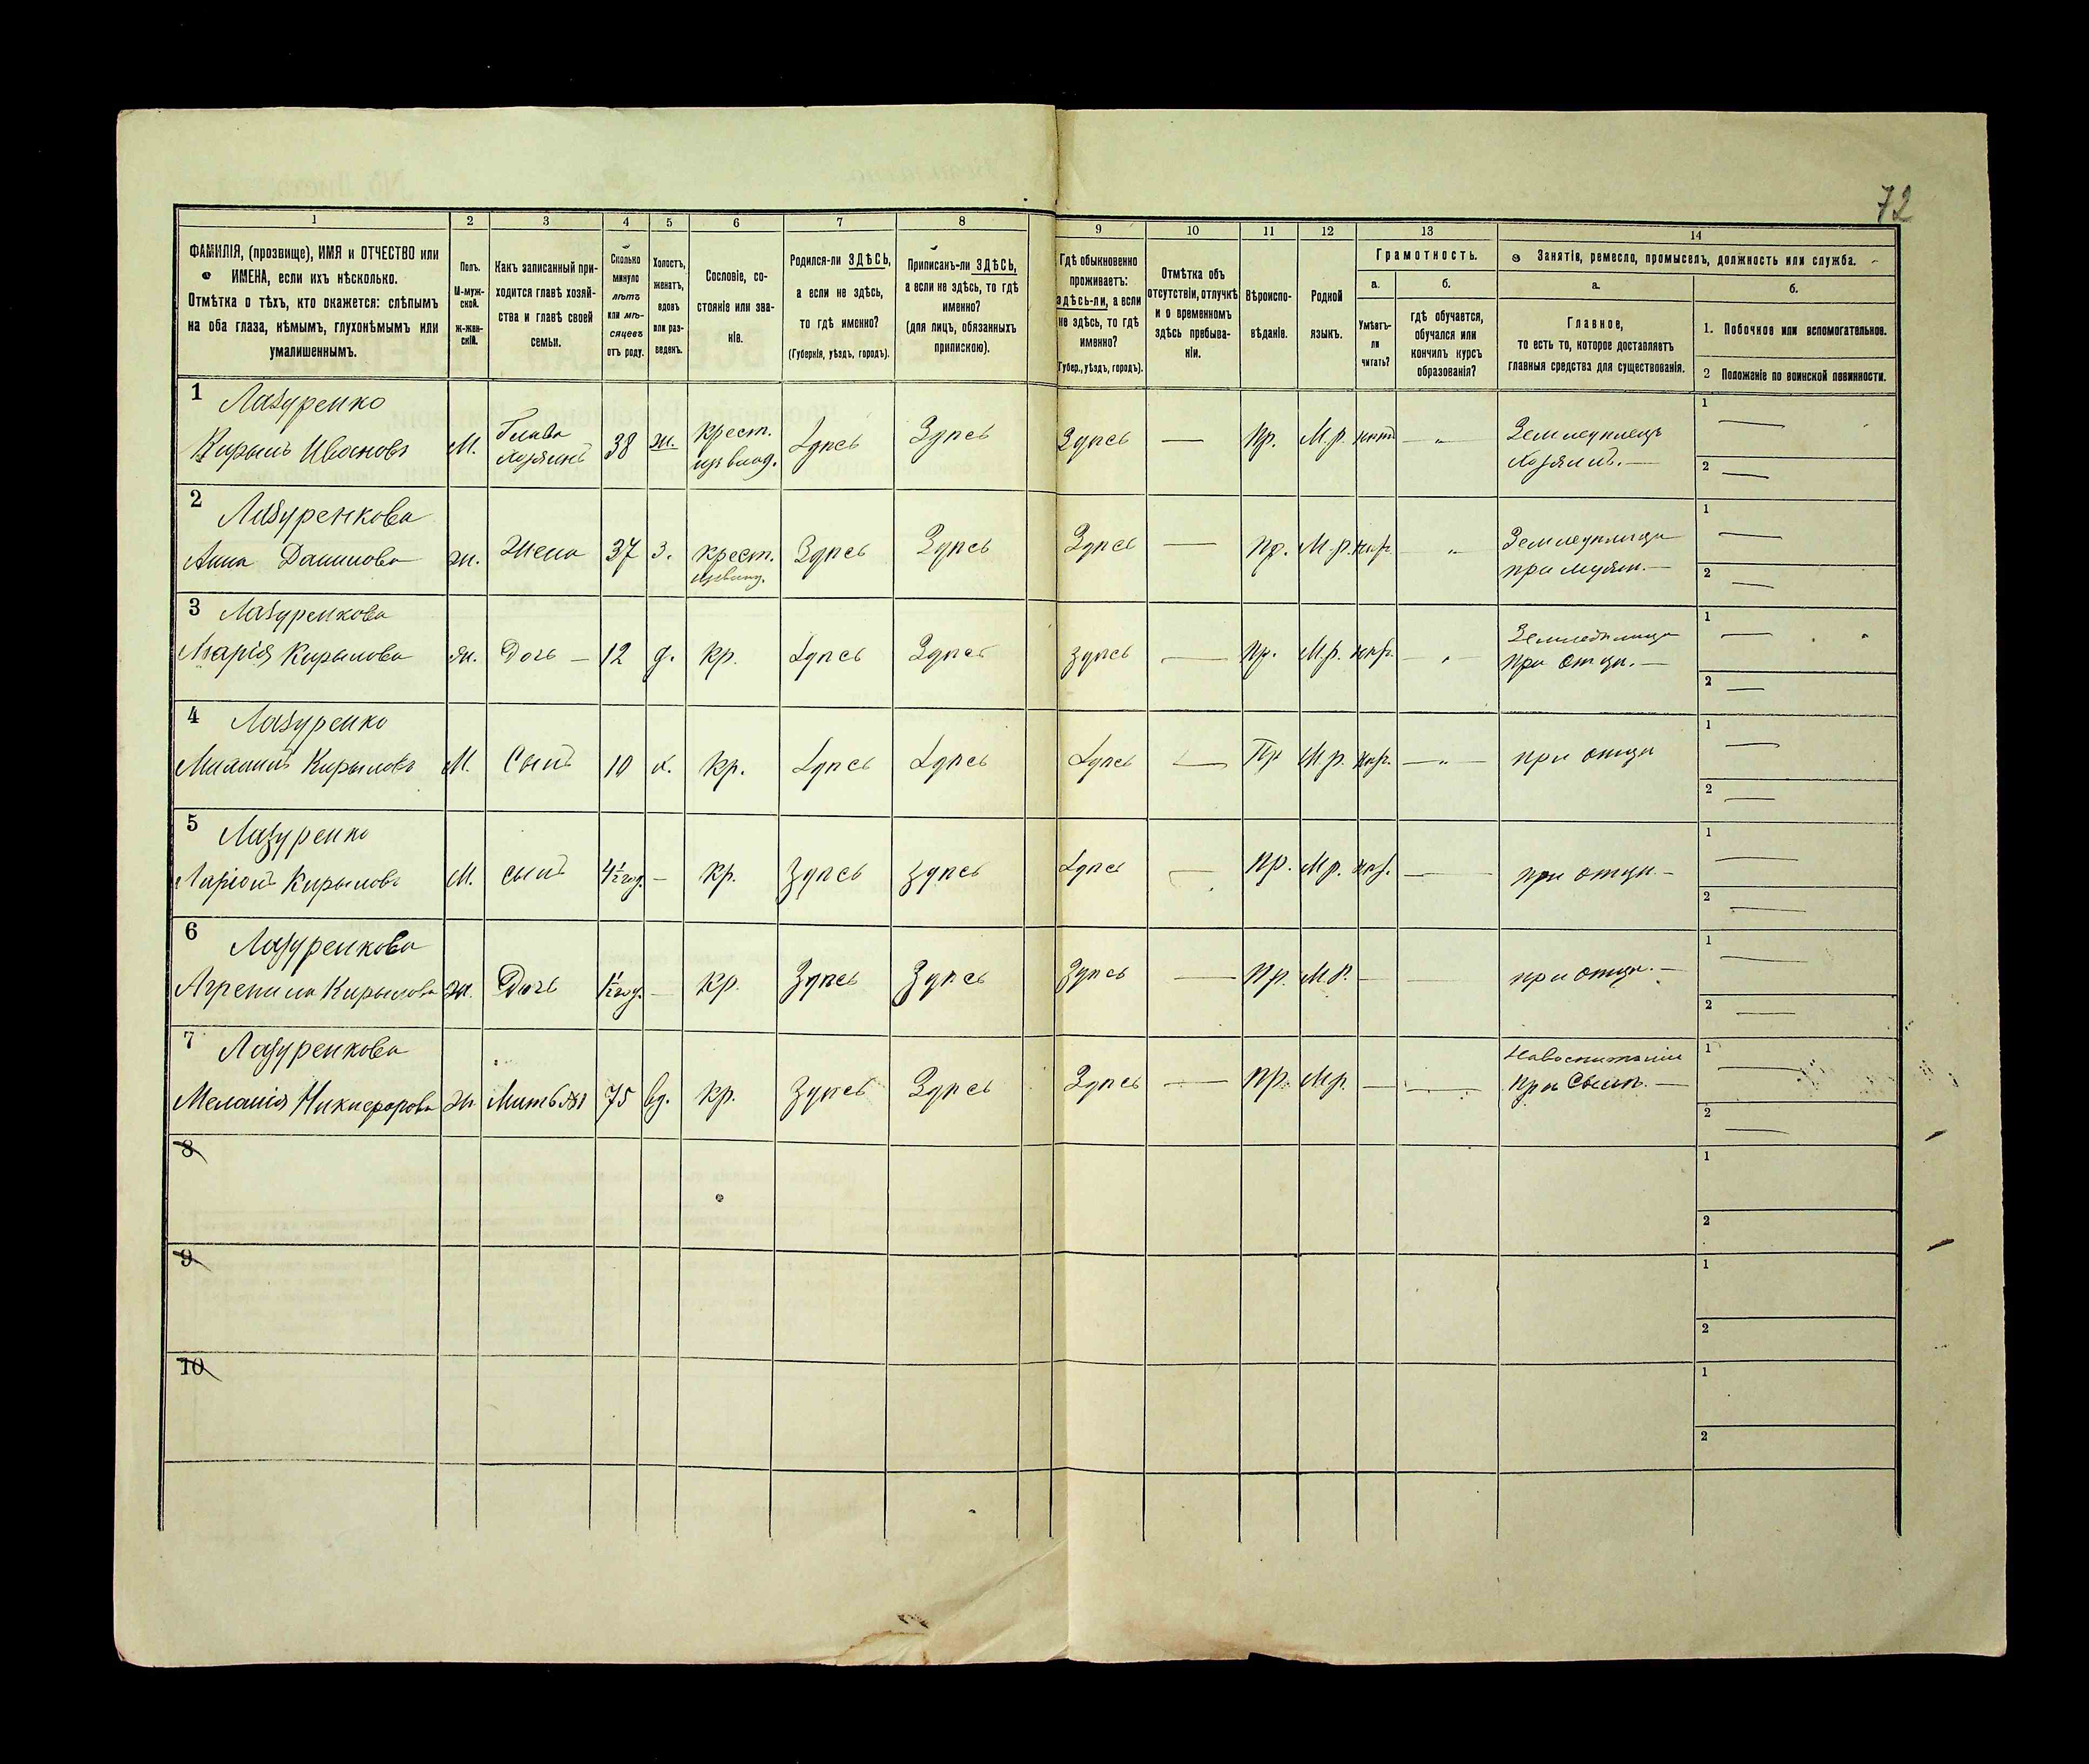 72
1 2 3 4 5 6 7 8 9 10 11 12 13 14
ФАМИЛІЯ, (прозвище), ИМЯ и ОТЧЕСТВО или
ИМЕНА, если ихъ нѣсколько.
Отмѣтка о тѣхъ, кто окажется: слѣпымъ
на оба глаза, нѣмымъ, глухонѣмымъ или
умалишеннымъ.
Полъ.
М-муж-
ской.
ж-жен-
скій.
Какъ записанный при-
ходится главѣ хозяй-
ства и главѣ своей
семьи.
Сколько
минуло
лѣтъ
или мѣ-
сяцевъ
отъ роду.
Холостъ,
женатъ,
вдовъ
или раз-
веденъ.
Сословіе, со-
стояніе или зва-
ніе.
Родился-ли ЗДѢСЬ,
а если не здѣсь,
то гдѣ именно?
(Губернія, уѣздъ, городъ).
Приписанъ-ли ЗДѢСЬ,
а если не здѣсь, то гдѣ
именно?
(для лицъ, обязанныхъ
припискою).
Гдѣ обыкновенно
проживаетъ:
здѣсь-ли, а если
не здѣсь, то гдѣ
именно?
Губер., уѣздъ, городъ).
Отмѣтка объ
отсутствіи, отлучкѣ
и о временномъ
здѣсь пребыва-
ніи.
Вѣроиспо-
вѣданіе.
Родной
языкъ.
Грамотность.
а.
Умѣетъ-
ли
читать?
б.
гдѣ обучается,
обучался или
кончилъ курсъ
образованія?
Занятія, ремесло, промыселъ, должность или служба.
а.
Главное,
то есть то, которое доставляетъ
главныя средства для существованія.
б.
1. Побочное или вспомогательное.
2 Положеніе по воинской повинности.
1 Лазуренко Глава крест. Земледѣлецъ 1
Кирылъ Ивановъ М. хозяинъ 38 ж. изъ влад. Здѣсь Здѣсь Здѣсь — Пр. М.р. нѣтъ — „ хозяинъ. — 2
2 Лазуренкова Земледѣлица 1
Анна Данилова ж. Жена 37 з. крест. Здѣсь Здѣсь Здѣсь — Пр. М.р. — „ при мужѣ. — 2
3 Лазуренкова Земледѣлица 1
Марія Кирылова ж. Дочь — 12 д. кр. Здѣсь Здѣсь здѣсь — Пр. М.р. — „ — при отцѣ. — 2
4 Лазуренко 1
Кирыловъ М. Сынъ 10 х. кр. Здѣсь Здѣсь Здѣсь — Пр М.р. — „ — при отцѣ 2
5 Лазуренко 1
Ларіонъ Кирыловъ М. сынъ 4½ год. — кр. здѣсь здѣсь Здѣсь — Пр. М.р. — при отцѣ — 2
6 Лазуренкова 1
Кирылова ж. Дочь 1½ год. — кр. Здѣсь Здѣсь Здѣсь — Пр. М.р. — — при отцѣ. — 2
7 Лазуренкова На воспитаніи 1
Меланія Никифорова ж Мать 75 вд. кр. Здѣсь Здѣсь Здѣсь — пр. М.р. — — при Сынѣ. — 2
8 1
2
9 1
2
10 1
2